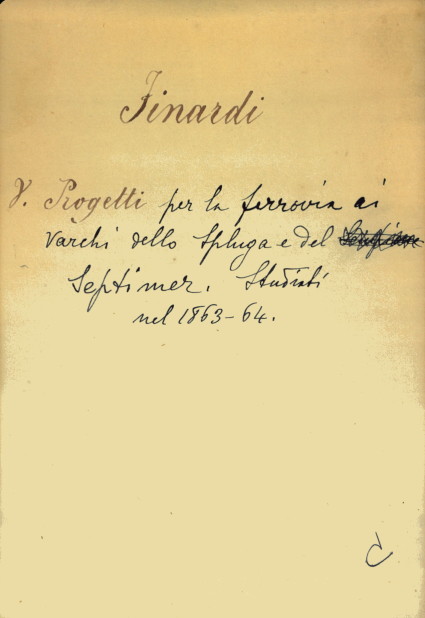 Finardi
V. Progetti per la ferrovia ai
varchi dello Spluga e del
Septimer. Studiati
nel 1863-64.
C